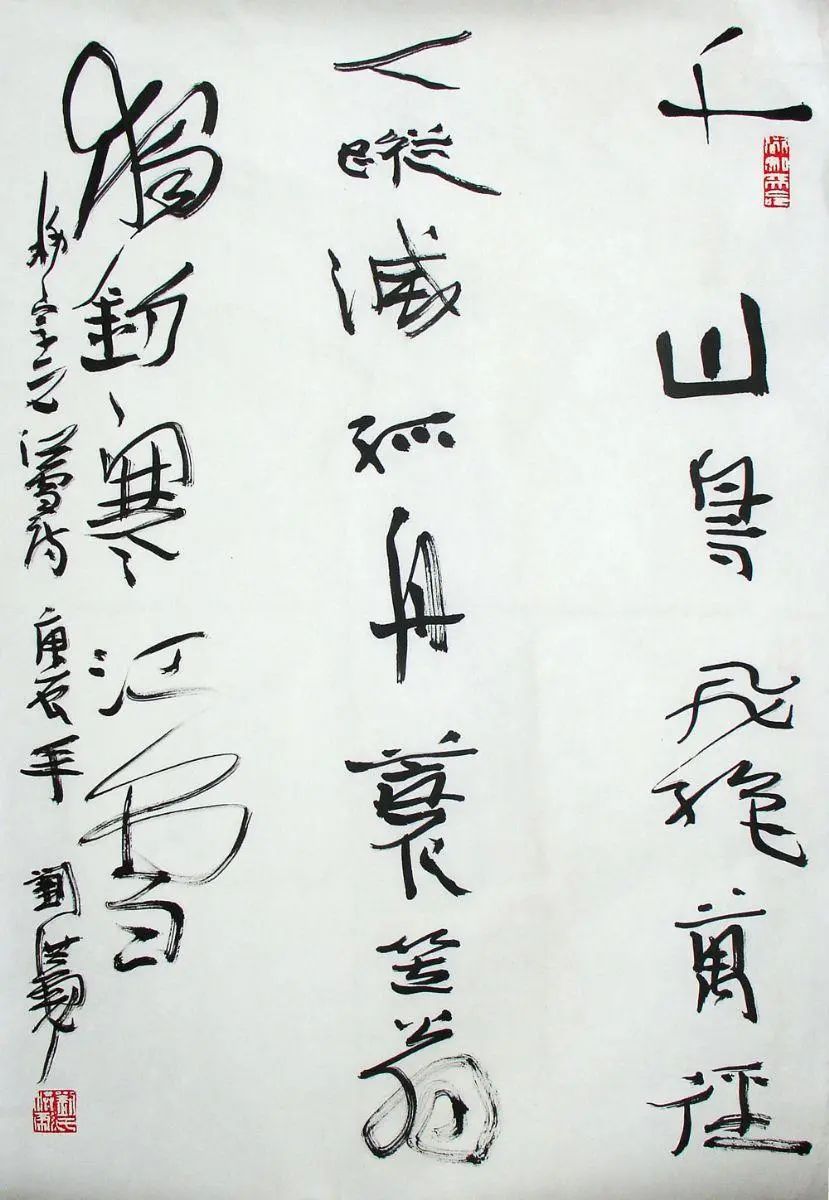 千山鳥飛絕萬徑
人蹤滅孤舟蓑笠翁
獨釣寒江雪
柳宗元江雪詩 庚辰年 劉洪彪